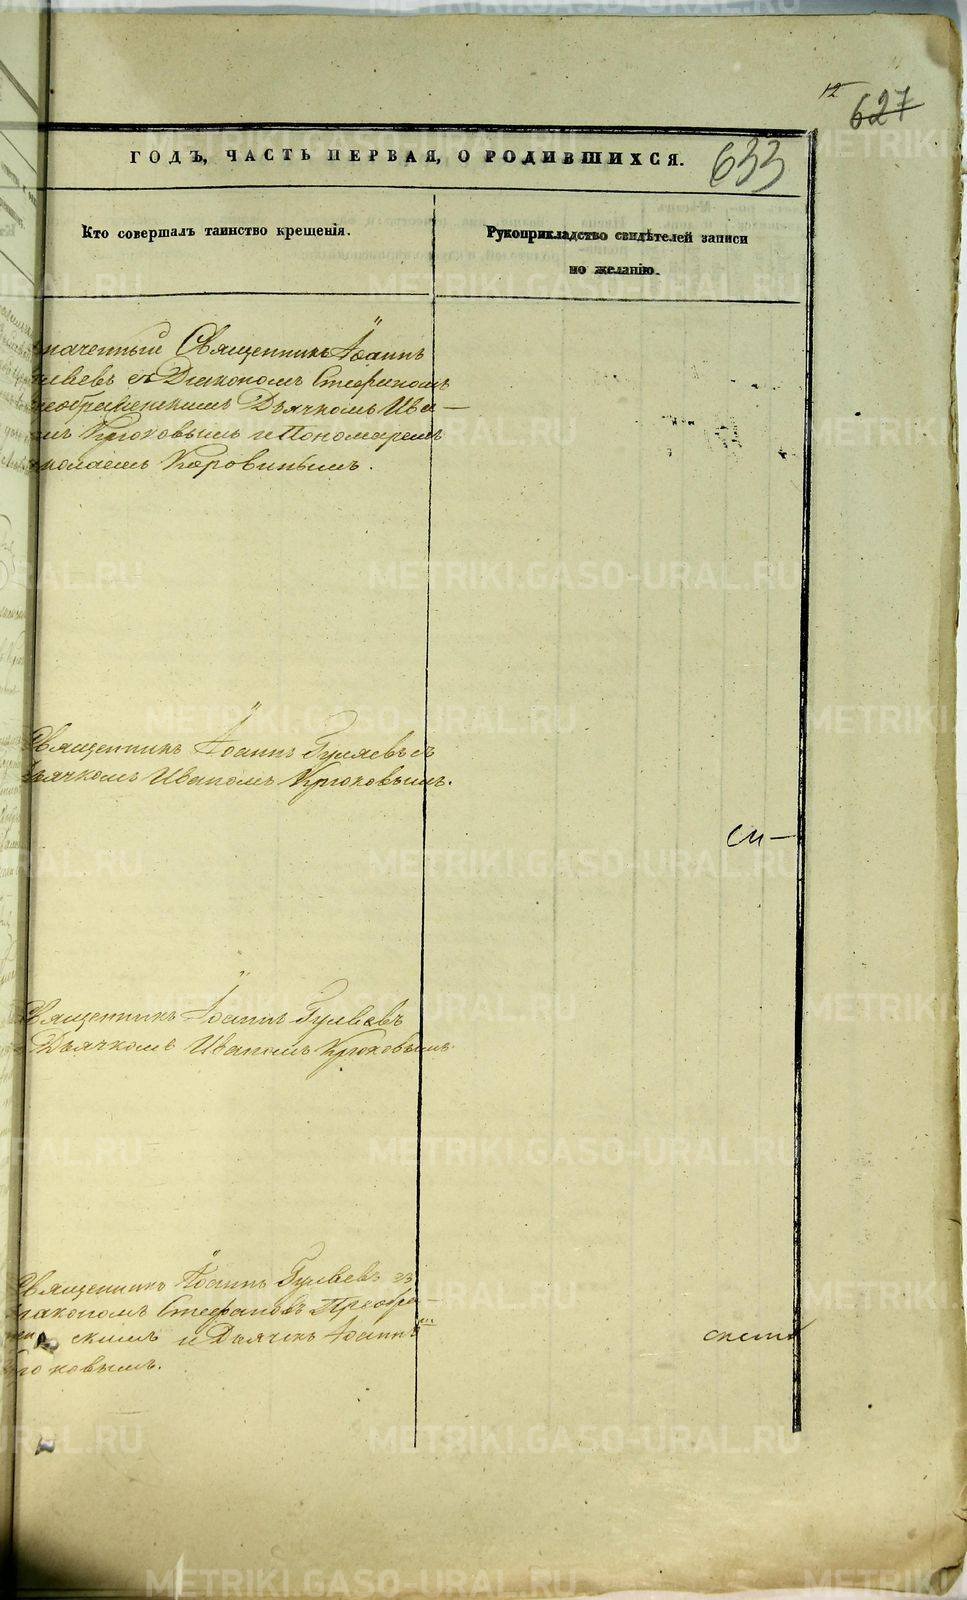 12
627
633
ГОДЪ, ЧАСТЬ ПЕРВАЯ, О РОДИВШИХСЯ.
Кто совершалъ таинство крещенія.
Рукоприкладство свидѣтелей записи
по желанію.
наченный Священникъ Іоаннъ
съ Діакономъ Стефаномъ
Дьячкомъ Ива-
мъ Крюковымъ и Пономаремъ
колаемъ Коровинымъ.
Священникъ Іоаннъ Гуляевъ съ
Дьячкомъ Иваномъ Крюковымъ.
Священникъ Іоаннъ Гуляевъ
Дьячкомъ Иваномъ Крюковымъ.
Священникъ Іоаннъ Гуляевъ съ
іакономъ Стефановъ Преобра-
скимъ и Дьячкъ Іоаннъ
ковымъ.
METRIKI.GASO-URAL.RU